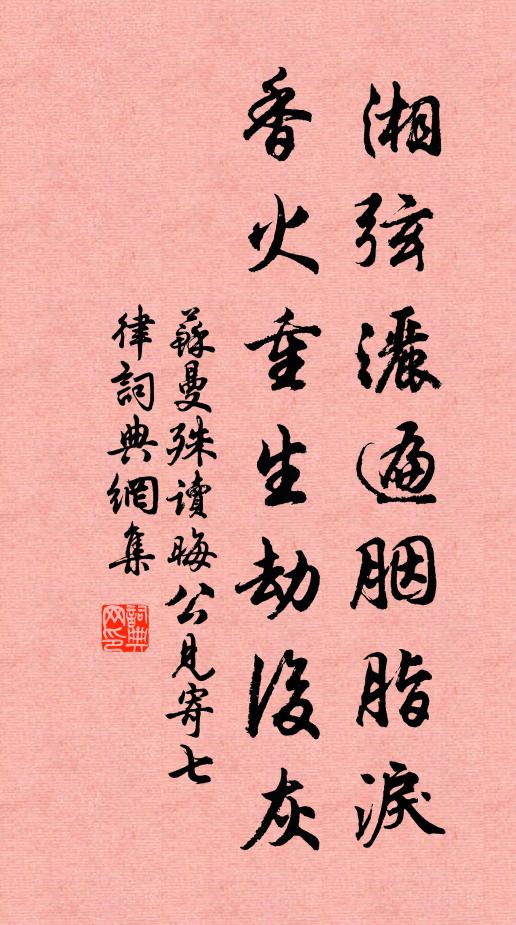 湘弦灑遍胭脂淚
香火重生劫後灰
蘇曼殊讀晦公見寄七
律詞典網集
詞典
网印